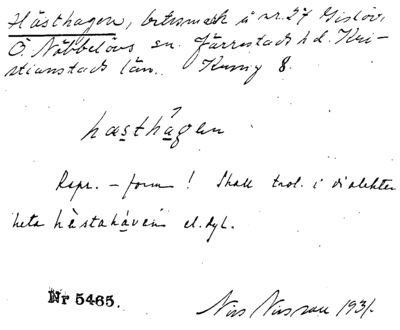 Hästhagen, betesmark å nr 27 Gislöv,
Ö. Nöbbelövs sn. Järrestads hd. Kri-
stianstads län. Kumg 8.
hæsthágen
Rspr. – form! Skall trol. i dialekten
heta hèstaháven el. dyl.
Nr 5465.
Nils Nilsson 1931.